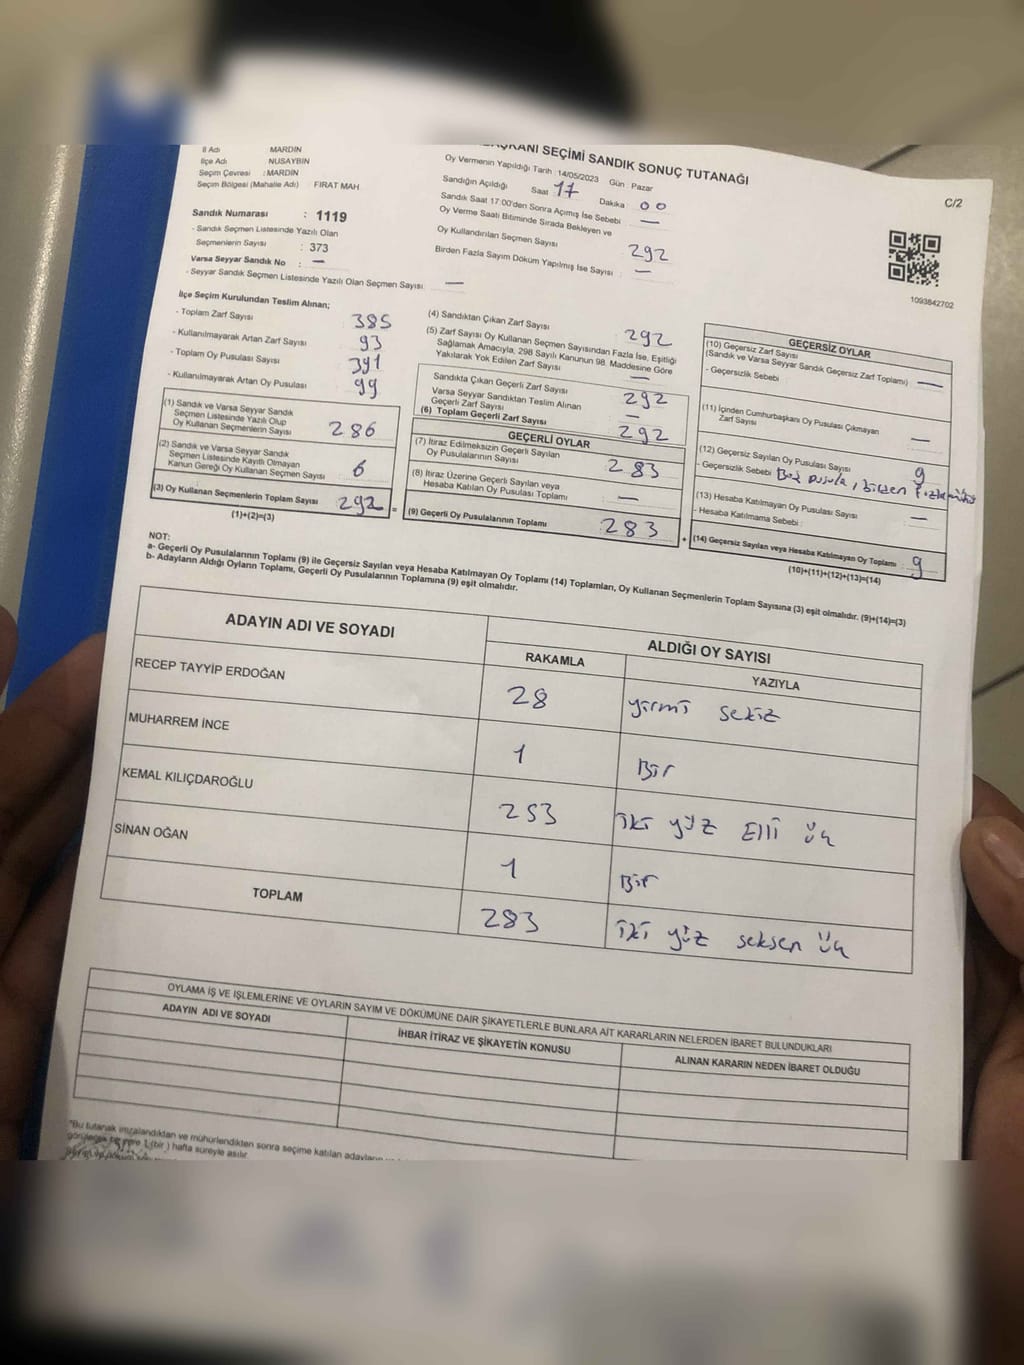 BAŞKANI SEÇİMİ SANDIK SONUÇ TUTANAĞI
C/2
İl Adı : MARDİN
İlçe Adı : NUSAYBİN
Seçim Çevresi : MARDİN
Seçim Bölgesi (Mahalle Adı) : FIRAT MAH.
Sandık Numarası : 1119
- Sandık Seçmen Listesinde Yazılı Olan
Seçmenlerin Sayısı : 373
Varsa Seyyar Sandık No : —
- Seyyar Sandık Seçmen Listesinde Yazılı Olan Seçmen Sayısı: —
Oy Vermenin Yapıldığı Tarih : 14/05/2023 Gün : Pazar
Sandığın Açıldığı Saat : 17 Dakika : 00
Sandık Saat 17:00'den Sonra Açımış İse Sebebi : —
Oy Verme Saati Bitiminde Sırada Bekleyen ve
Oy Kullandırılan Seçmen Sayısı : 292
Birden Fazla Sayım Döküm Yapılmış İse Sayısı : —
1093842702
İlçe Seçim Kurulundan Teslim Alınan;
- Toplam Zarf Sayısı 385
- Kullanılmayarak Artan Zarf Sayısı 93
- Toplam Oy Pusulası Sayısı 391
- Kullanılmayarak Artan Oy Pusulası 99
(1) Sandık ve Varsa Seyyar Sandık
Seçmen Listesinde Yazılı Olup
Oy Kullanan Seçmenlerin Sayısı 286
(2) Sandık ve Varsa Seyyar Sandık
Seçmen Listesinde Kayıtlı Olmayan
Kanun Gereği Oy Kullanan Seçmen Sayısı 6
(3) Oy Kullanan Seçmenlerin Toplam Sayısı 292
(1)+(2)=(3)
=
(4) Sandıktan Çıkan Zarf Sayısı 292
(5) Zarf Sayısı Oy Kullanan Seçmen Sayısından Fazla İse, Eşitliği
Sağlamak Amacıyla, 298 Sayılı Kanunun 98. Maddesine Göre
Yakılarak Yok Edilen Zarf Sayısı —
Sandıkta Çıkan Geçerli Zarf Sayısı 292
Varsa Seyyar Sandıktan Teslim Alınan
Geçerli Zarf Sayısı —
(6) Toplam Geçerli Zarf Sayısı 292
GEÇERLİ OYLAR
(7) İtiraz Edilmeksizin Geçerli Sayılan
Oy Pusulalarının Sayısı 283
(8) İtiraz Üzerine Geçerli Sayılan veya
Hesaba Katılan Oy Pusulası Toplamı —
(9) Geçerli Oy Pusulalarının Toplamı 283
+
GEÇERSİZ OYLAR
(10) Geçersiz Zarf Sayısı
(Sandık ve Varsa Seyyar Sandık Geçersiz Zarf Toplamı) —
- Geçersizlik Sebebi :
(11) İçinden Cumhurbaşkanı Oy Pusulası Çıkmayan
Zarf Sayısı —
(12) Geçersiz Sayılan Oy Pusulası Sayısı 9
- Geçersizlik Sebebi Boş pusula, birden fazla
(13) Hesaba Katılmayan Oy Pusulası Sayısı —
- Hesaba Katılmama Sebebi :
(14) Geçersiz Sayılan veya Hesaba Katılmayan Oy Toplamı 9
(10)+(11)+(12)+(13)=(14)
NOT:
a- Geçerli Oy Pusulalarının Toplamı (9) ile Geçersiz Sayılan veya Hesaba Katılmayan Oy Toplamı (14) Toplamları, Oy Kullanan Seçmenlerin Toplam Sayısına (3) eşit olmalıdır. (9)+(14)=(3)
b- Adayların Aldığı Oyların Toplamı, Geçerli Oy Pusulalarının Toplamına (9) eşit olmalıdır.
ADAYIN ADI VE SOYADI ALDIĞI OY SAYISI
RAKAMLA YAZIYLA
RECEP TAYYİP ERDOĞAN 28 yirmi sekiz
MUHARREM İNCE 1 Bir
KEMAL KILIÇDAROĞLU 253 iki yüz Elli üç
SİNAN OĞAN 1 Bir
TOPLAM 283 iki yüz seksen üç
OYLAMA İŞ VE İŞLEMLERİNE VE OYLARIN SAYIM VE DÖKÜMÜNE DAİR ŞİKAYETLERLE BUNLARA AİT KARARLARIN NELERDEN İBARET BULUNDUKLARI
ADAYIN ADI VE SOYADI İHBAR İTİRAZ VE ŞİKAYETİN KONUSU ALINAN KARARIN NEDEN İBARET OLDUĞU
*Bu tutanak imzalandıktan ve mühürlendikten sonra seçime katılan adayların
görülecek bir yere 1 (bir) hafta süreyle asılır.